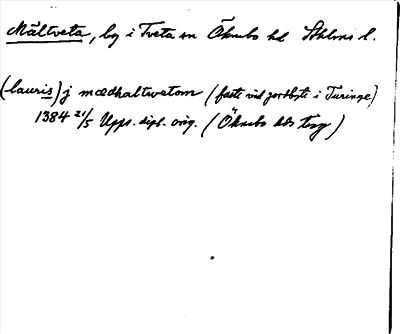 Mältveta, by i Tveta sn Öknebo hd Sthlms l.
(lauris) j mædhaltwetom (faste vid jordbyte i Turinge)
1384 21/5 Upps. dipl. orig. (Öknebo hds ting)